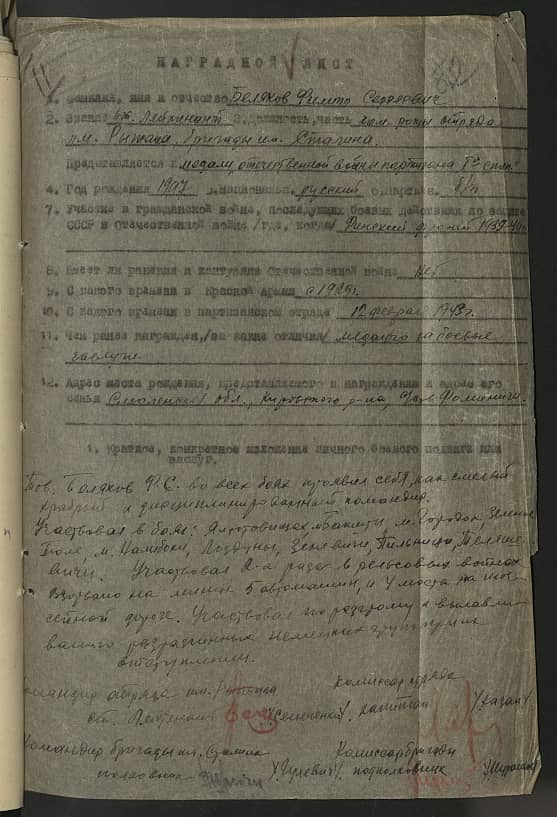 НАГРАДНОЙ ЛИСТ
1. Фамилия, имя и отчество Беляков Сергеевич
2. Звание ст. Лейтенант 3. Должность, часть ком. роты отряда
им. Рыжака, бригады им. Сталина.
Представляется к медали, отечественной войны партизана 1ой степ."
4. Год рождения 1907 5. Национальн. русский 6. Партийн. б/п
7. Участие в гражданской войне, последующих боевых действиях по защите
СССР и Отечественной войне /где, когда/ Финский фронт 1939-40г.
8. Имеет ли ранения и контузии Отечественной войне Нет
9. С какого времени в Красной Армии с 1929г.
10. С какого времени в партизанском отряде 12 февраля 1943г.
11. Чем ранее награжден, /за какие отличия/ медалью за боевые
заслуги
12. Адрес места рождения, представляемого к награждению и адрес его
семьи Смоленская обл., Кировского р-на,
1. Краткое, конкретное изложение личного боевого подвига или
заслуг.
Тов. Беляков Ф.С. во всех боях проявил себя, как смелый
храбрый и дисциплинированный командир.
Участвовал в боях: м. Городок,
Поле, м. Налибоки,
Участвовал 2-а раза в рельсовых войнах
Взорвано на минах 5 автомашин, и 4 моста на шос-
сейной дороге. Участвовал по разгрому и вылавли-
ванию немецких групп при их
отступлении.
Командир отряда им. Комиссар отряда
ст. Лейтенант /Семченко/ капитан
Командир бригады им. Сталина Комиссар бригады
полковник /Гулевич/ подполковник /Мурашко/